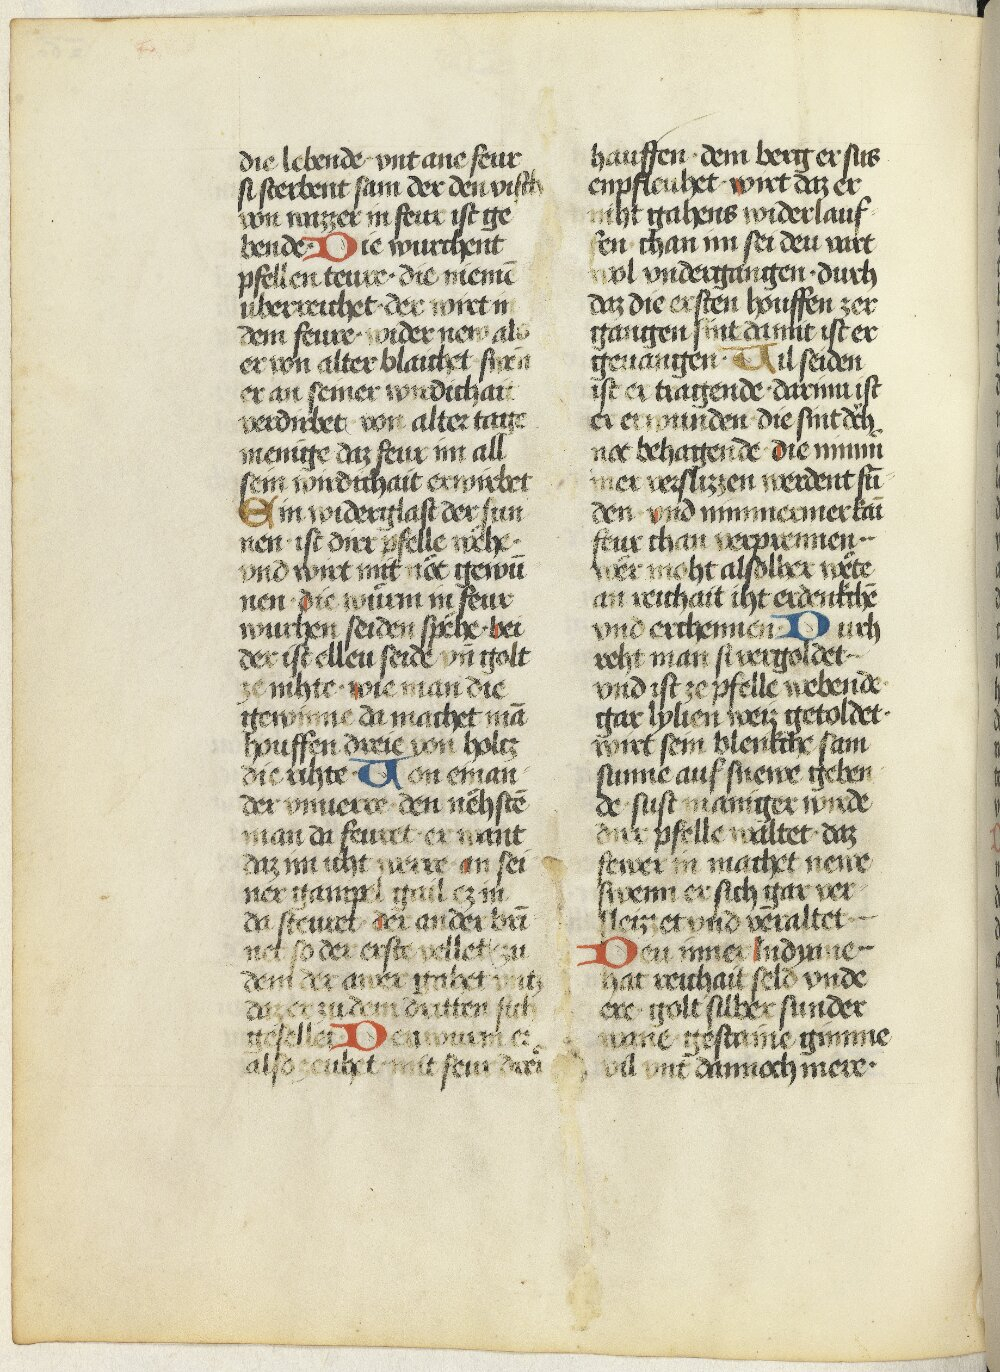 die lebende· vnt ane feur
si sterbent sam der den visch
von wazzer in feur ist ge
bende· Die wurchent
pfellen teure· die niemē
uberreichet· der wirt in
dem feure· wider new als
er von alter blaichet· swen
er an seiner wirdichait
verdirbet· von alter tage
menige daz feur im all
sein wirdichait erwirbet
Ein widerglast der sun
nen· ist dirr pfelle wehe·
vnd wirt mit nöt gewū
nen· die würm in feur
wurchen seiden spehe· bei
der ist elleu seide vn̄ golt
ze nihte· wie man die
gewinne da machet mā
houffen dreie von holtz
die rihte· Von einan
der vnuerre· den nëhstē
man da feuret· er want
daz im iht werre· an sei
ner gampel gail ez in
da steuret· der ander brī
net so der erste vellet· zu
dem der awer gahet vntz
daz er zu dem dritten sich
gesellet· Den wurm er
also zeuhet· mit feur drei
hauffen· dem berg er sus
enpfleuhet· wirt daz er
niht gahens widerlauf
fen· chan im sei deu vart
wol vndergangen· durch
daz die ersten houffen zer
gangen sint damit ist er
geuangen· Vil seiden
ist er tragende· darinn ist
er erwunden· die sint dēh
not behagende· die nimm
mer verslizzen werdent fū
den· vnd nimmermer kāi
feur chan verprennen·
wër moht alsolher wëte
an reichait iht erdenkchē
vnd erchennen· Durch
reht man si vergoldet
vnd ist ze pfelle webende·
gar lylien weiz getoldet·
wirt sein blenkche sam
sunne auf snewe geben
de· sust maniger wirde
dirr pfelle waltet· daz
fewer in machet newe
swenn er sich gar ver
sleizzet vnd veraltet
Deu inner Indyane
hat reichait seld vnde
ere· golt silber sunder
wane· gestaine gimme
vil vnt dannoch mere·